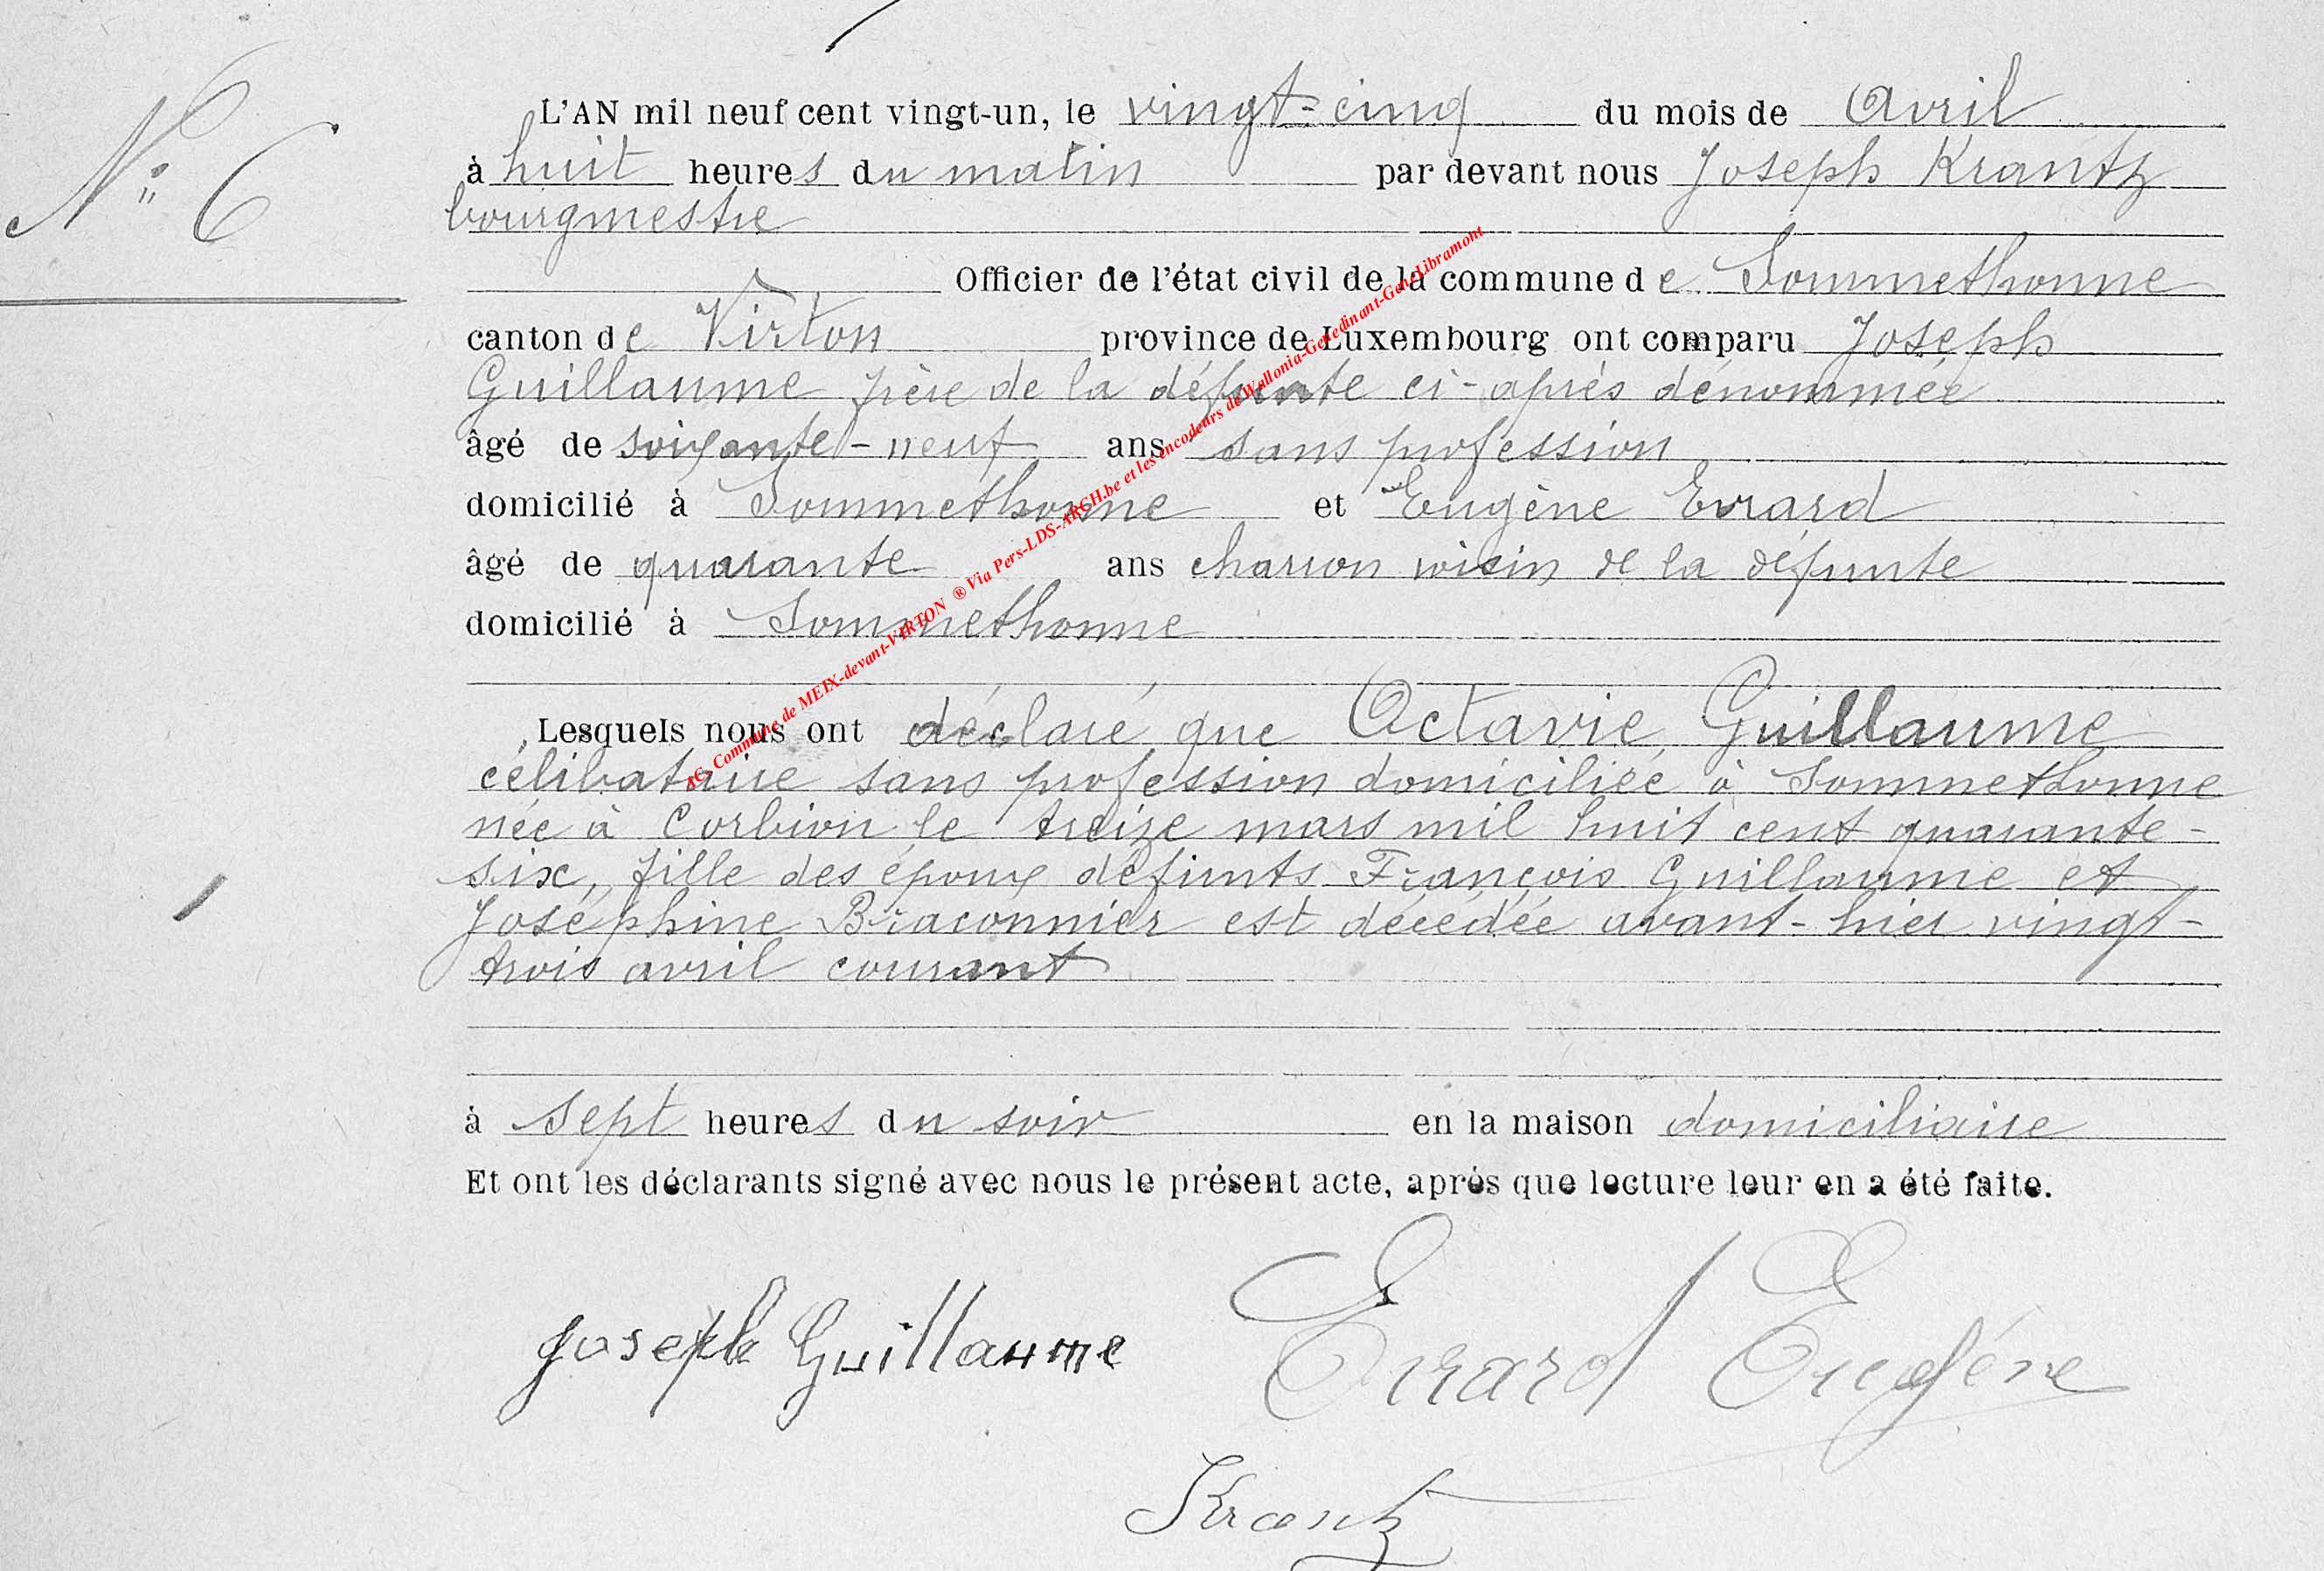 N° 6
L'AN mil neuf cent vingt-un, le vingt-cinq du mois de Avril
à huit heures du matin par devant nous Joseph Krantz
bourgmestre
Officier de l'état civil de la commune de Sommethonne
canton de Virton province de Luxembourg ont comparu Joseph
Guillaume frère de la défunte ci-après dénommée
âgé de soixante-neuf ans sans profession
domicilié à Sommethonne et Eugène Evrard
âgé de quarante ans charron voisin de la défunte
domicilié à Sommethonne
Lesquels nous ont déclaré que Octavie Guillaume
célibataire sans profession domiciliée à Sommethonne
née à Corbion le treize mars mil huit cent quarante-
six, fille des époux défunts François Guillaume et
Joséphine Braconnier est décédée avant-hier vingt-
trois avril courant
à sept heures du soir en la maison domiciliaire
Et ont les déclarants signé avec nous le présent acte, après que lecture leur en a été faite.
Joseph Guillaume Evrard Eugène
Krantz
Commune de MEIX-devant-VIRTON ® Via Pers-LDS-ARCH.be et les encodeurs de Wallonia-Genedinant-Gene-Libramont